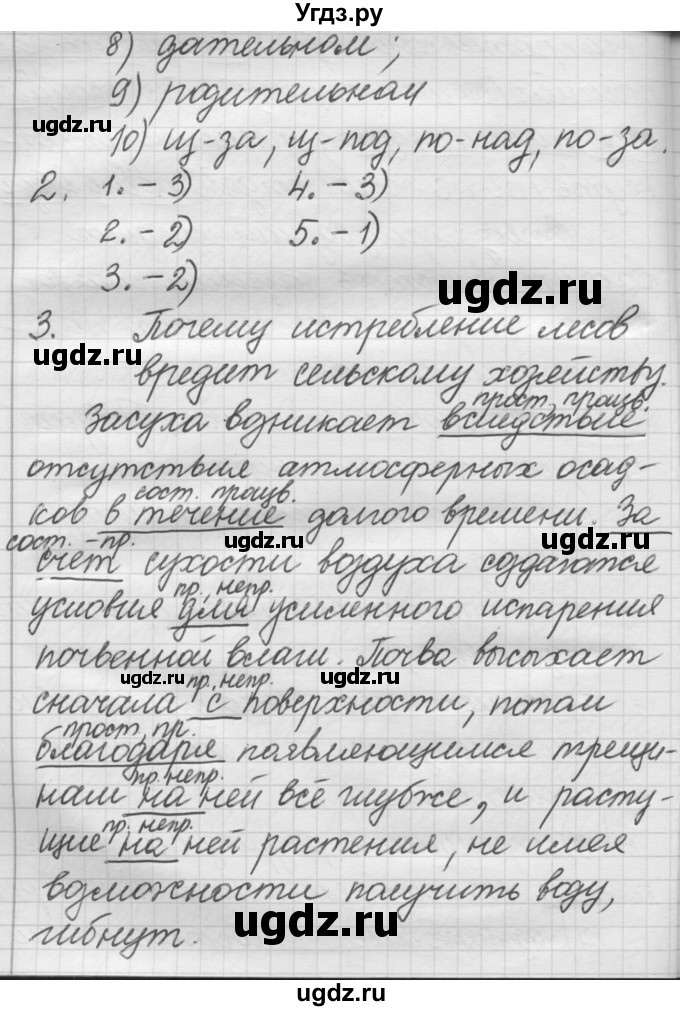 Угдз.ру
8) дательном;
9) родительном
ugdz.ru
10) из-за, из-под, по-над, по-за.
2. 1. – 3) 4. – 3)
2. – 2) 5. – 1)
3. – 2)
ugdz.ru
3. Почему истребление лесов
ugdz.ru
вредит сельскому хозяйству.
прост. произв.
Засуха возникает вследствие
отсутствия атмосферных осад-
сост. произв.
ков в течение долгого времени. За
сост. – пр.
ugdz.ru ugdz.ru
счет сухости воздуха создаются
пр. непр.
условия для усиленного испарения
почвенной влаги. Почва высыхает
пр. непр.
ugdz.ru ugdz.ru
сначала с поверхности, потом
прост. пр.
благодаря появляющимся трещи-
пр. непр.
нам на ней всё глубже, и расту-
пр. непр.
щие на ней растения, не имея
возможности получить воду,
ugdz.ru
гибнут.
ugdz.ru